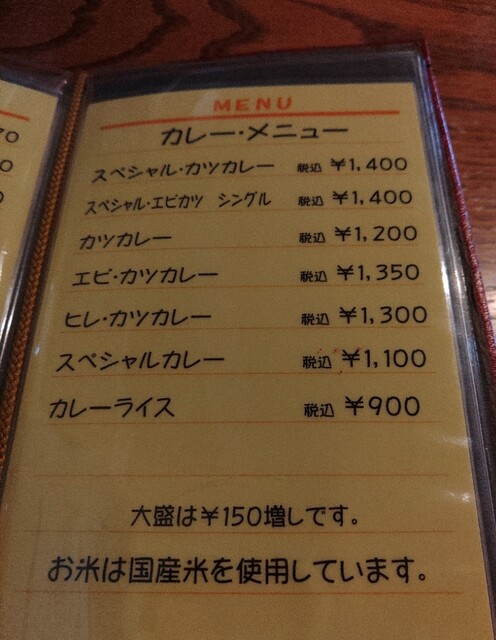 MENU
カレー・メニュー
スペシャル・カツカレー 税込 ¥1,400
スペシャル・エビカツ シングル 税込 ¥1,400
カツカレー 税込 ¥1,200
エビ・カツカレー 税込 ¥1,350
ヒレ・カツカレー 税込 ¥1,300
スペシャルカレー 税込 ¥1,100
カレーライス 税込 ¥900
大盛は¥150増しです。
お米は国産米を使用しています。